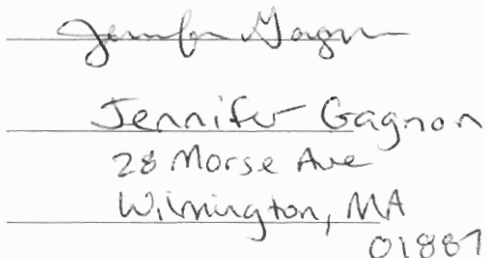 Jennifer Gagnon
Jennifer Gagnon
28 Morse Ave
Wilmington, MA
01887